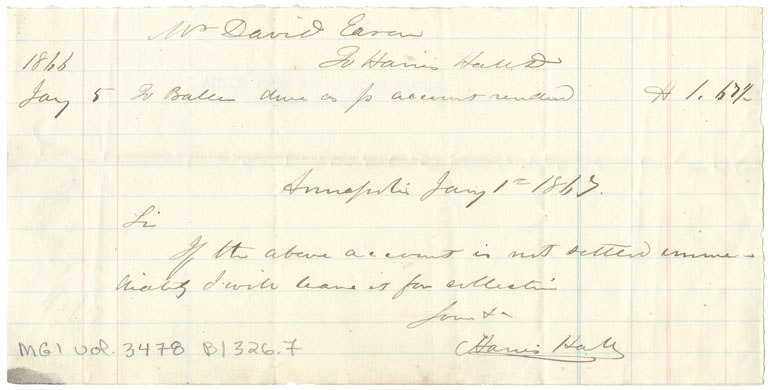 Mr David Eason
To Harris Hall Dr
1866
Jany 5 To Balce due as pr account rendered $ 1.67½
Annapolis Jany 1st 1867.
Sir
If the above account is not settled imme-
diately I will leave it for collection
Yours &c
Harris Hall
MG1 vol. 3478 B1326.7